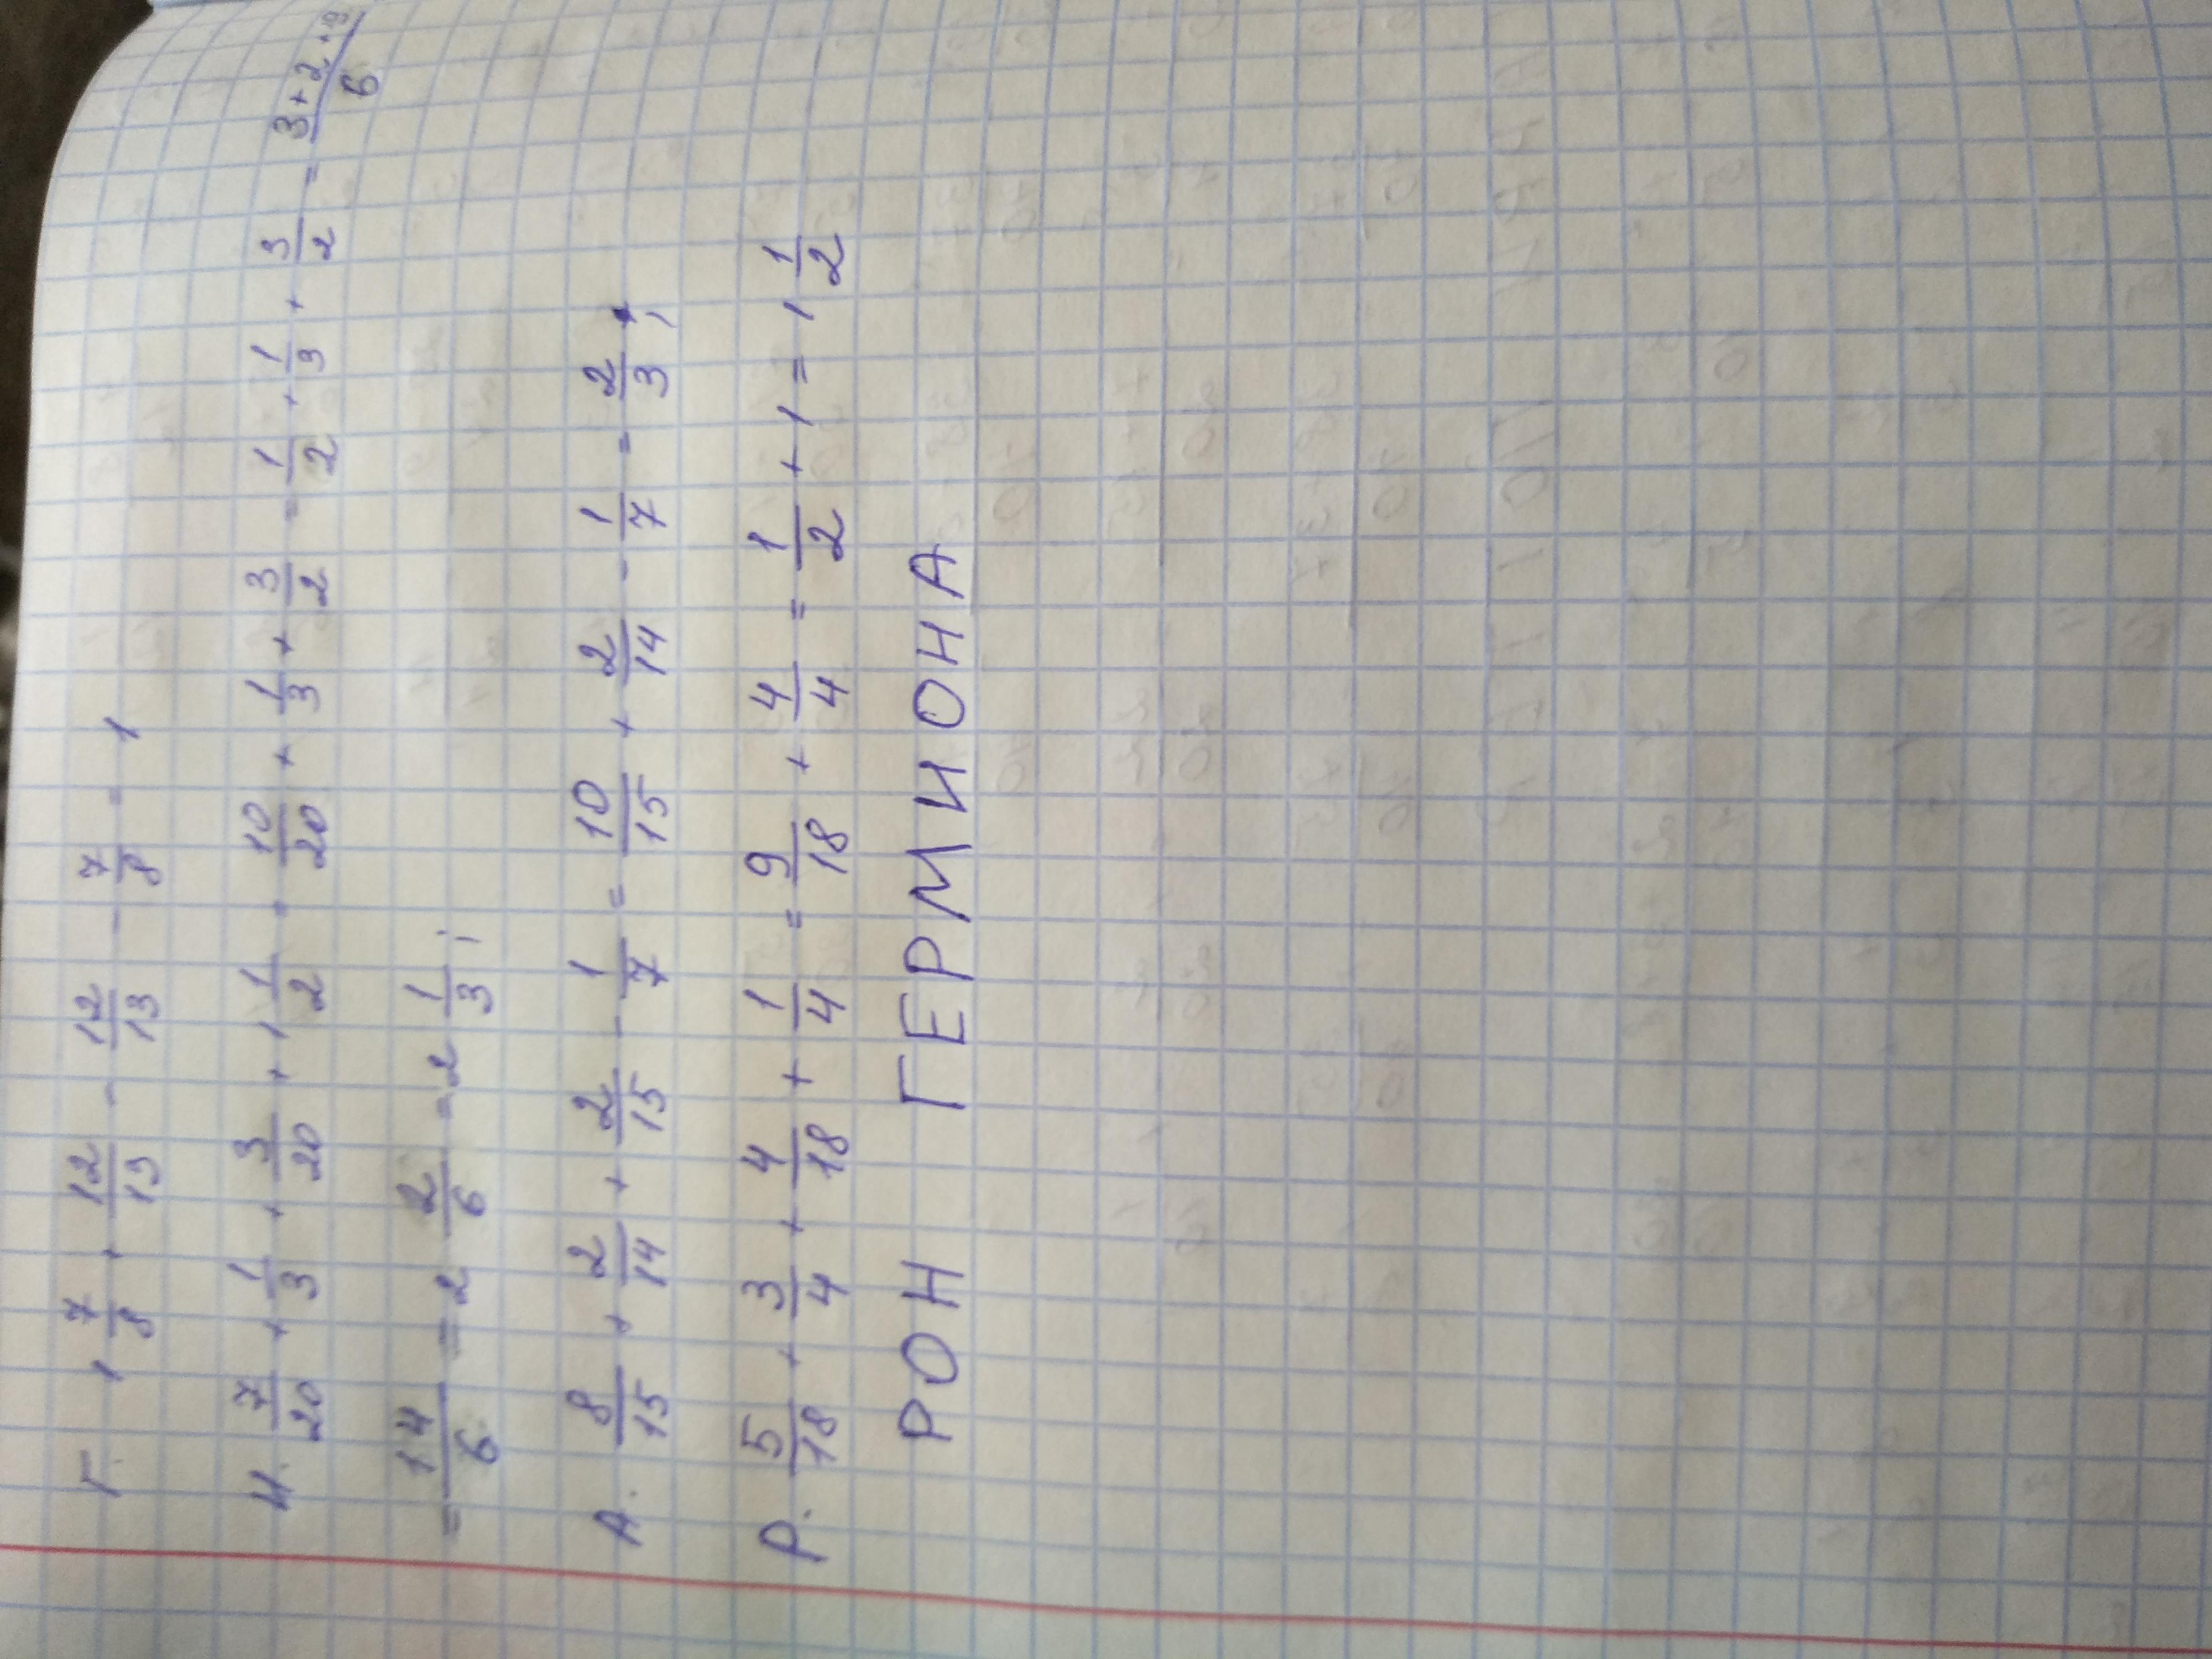 Г. 1 7/8 + 12/13 - 12/13 - 7/8 = 1
И. 7/20 + 1/3 + 3/20 + 1 1/2 = 10/20 + 1/3 + 3/2 = 1/2 + 1/3 + 3/2 = (3+2+9)/6
= 14/6 = 2 2/6 = 2 1/3;
А. 8/15 + 2/14 + 2/15 - 1/7 = 10/15 + 2/14 - 1/7 = 2/3;
Р. 5/18 + 3/4 + 4/18 + 1/4 = 9/18 + 4/4 = 1/2 + 1 = 1 1/2
РОН ГЕРМИОНА